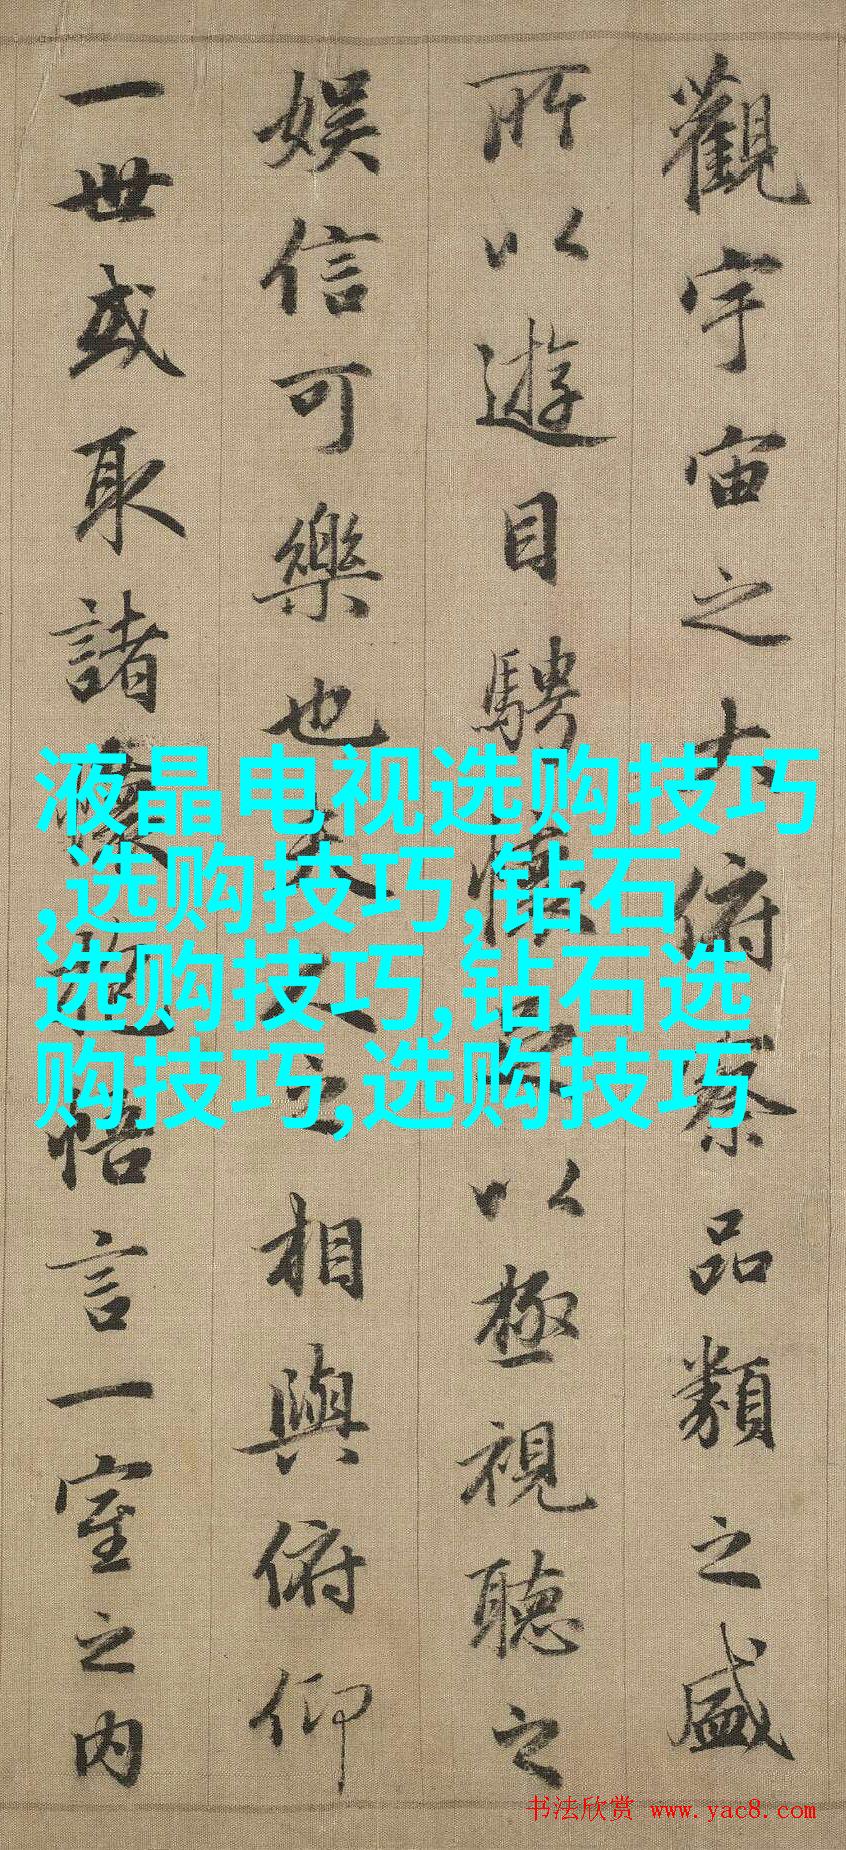 觀宇宙之大俯察品類之盛
所以遊目騁懷足以極視聽之
娱信可樂也夫人之相與俯仰
一世或取諸懷抱悟言一室之内
液晶电视选购技巧
,选购技巧,钻石
选购技巧,钻石选
购技巧,选购技巧
书法欣赏 www.yac8.com